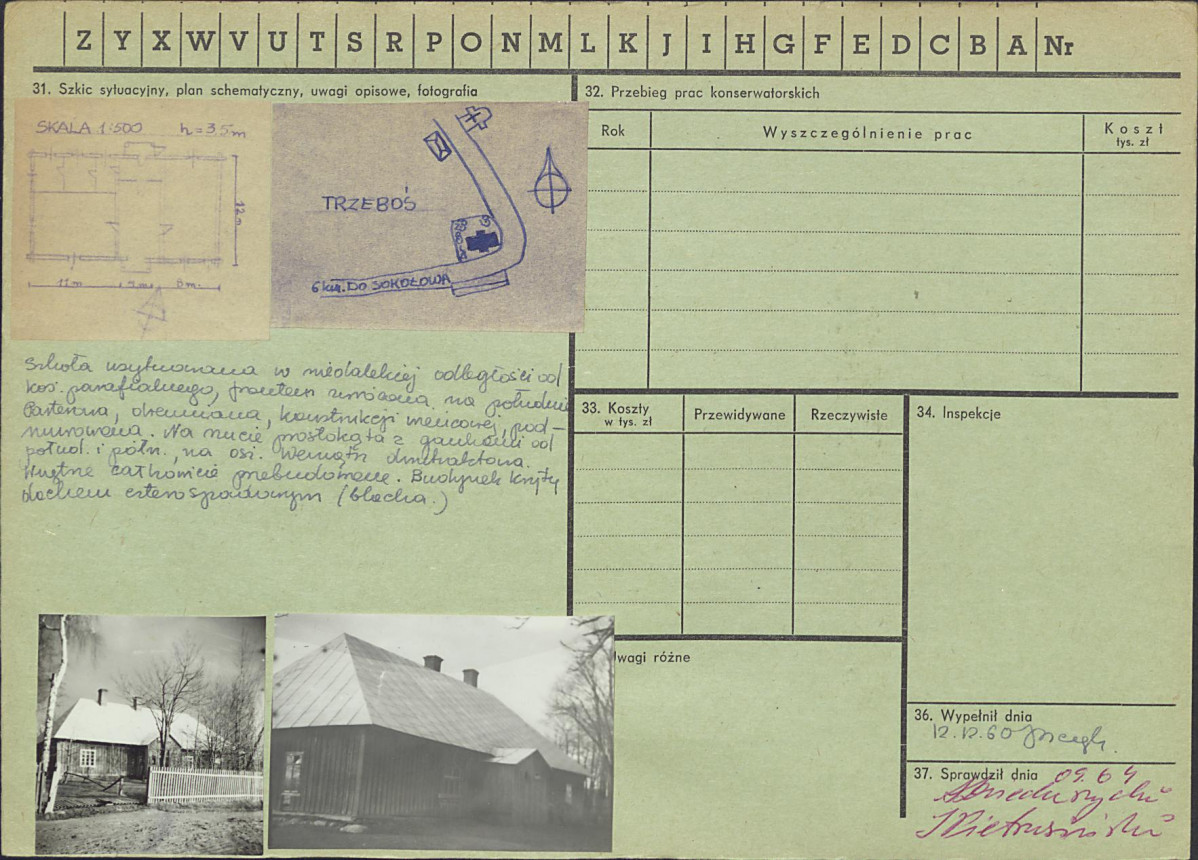 Z Y X W V U T S R P O N M L K J I H G F E D C B A Nr
31. Szkic sytuacyjny, plan schematyczny, uwagi opisowe, fotografia
SKALA 1:500 h=3,5m
12m
11m 8m.
TRZEBOŚ
6 km. DO SOKOŁOWA
Szkoła usytuowana w niedalekiej odległości od
koś. parafialnego, frontem zwrócona na południe
Parterowa, drewniana, konstrukcji wieńcowej, pod-
murowana. Na rzucie prostokąta z gankami od
połud. i półn., na osi. Wewnątrz dwutraktowa.
Wnętrze całkowicie przebudowane. Budynek kryty
dachem czterospadowym (blacha.)
32. Przebieg prac konserwatorskich
Rok Wyszczególnienie prac Koszt
tys. zł
33. Koszty
w tys. zł
Przewidywane Rzeczywiste
34. Inspekcje
wagi różne
36. Wypełnił dnia
12.12.60
37. Sprawdził dnia 09.64